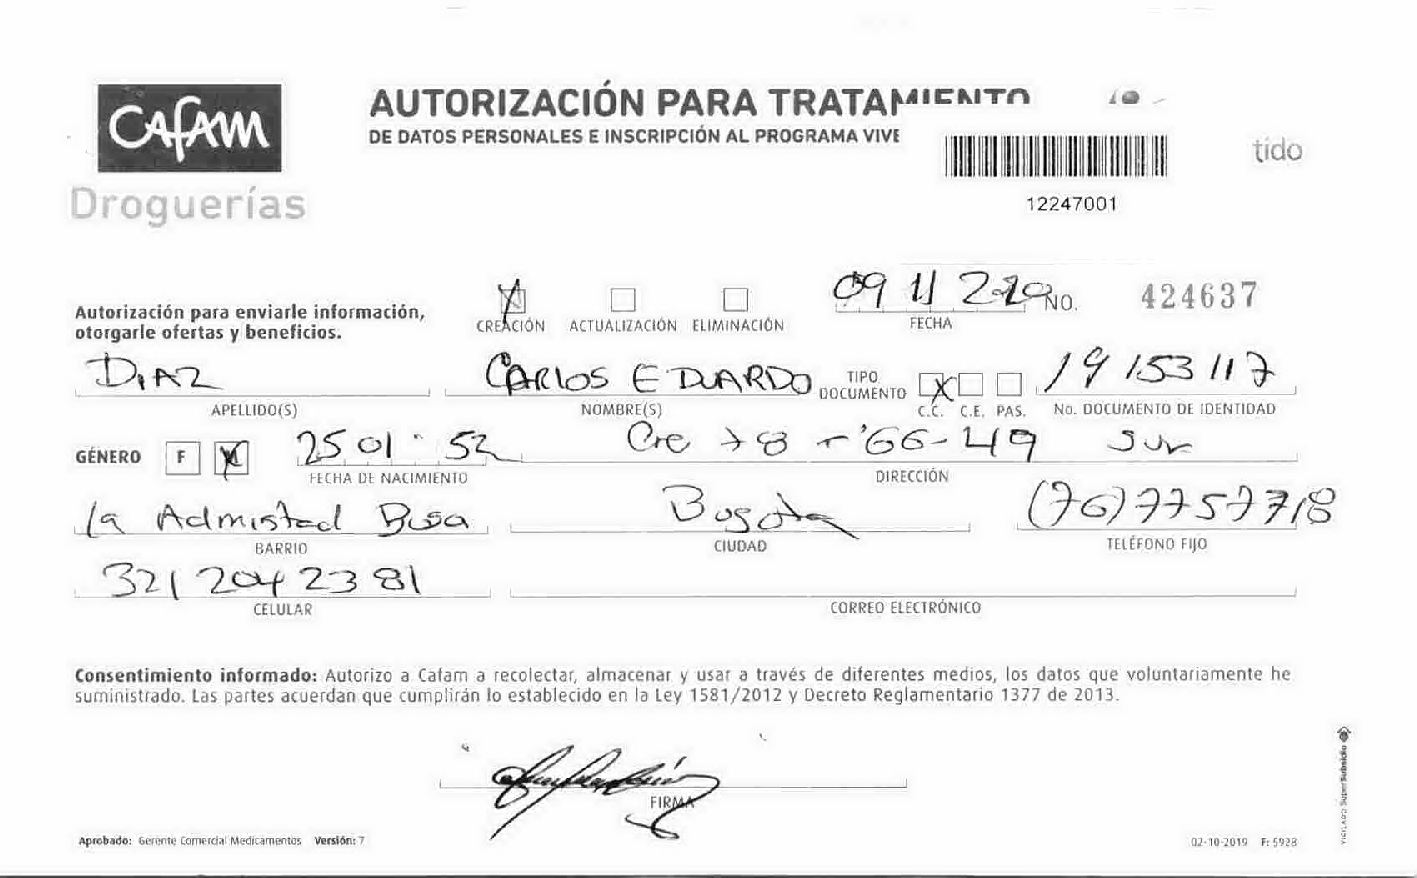 CAFAM
Droguerías
AUTORIZACIÓN PARA TRATAMIENTO
DE DATOS PERSONALES E INSCRIPCIÓN AL PROGRAMA VIVE
tido
12247001
Autorización para enviarle información,
otorgarle ofertas y beneficios.
CREACIÓN ACTUALIZACIÓN ELIMINACIÓN
09 11
FECHA
NO. 424637
DIAZ
APELLIDO(S)
CARLOS EDUARDO
NOMBRE(S)
TIPO
DOCUMENTO
C.C. C.E. PAS.
19 153 117
No. DOCUMENTO DE IDENTIDAD
GÉNERO F M
25 01 52
FECHA DE NACIMIENTO
Cre 78 - 66-49 sur
DIRECCIÓN
la Admistad Bosa
BARRIO
Bogota
CIUDAD
(76) 7757718
TELÉFONO FIJO
321 204 23 81
CELULAR
CORREO ELECTRÓNICO
Consentimiento informado: Autorizo a Cafam a recolectar, almacenar y usar a través de diferentes medios, los datos que voluntariamente he
suministrado. Las partes acuerdan que cumplirán lo establecido en la Ley 1581/2012 y Decreto Reglamentario 1377 de 2013.
FIRMA
Aprobado: Gerente Comercial Medicamentos Versión: 7
02-10-2019 F: 5928
VIGILADO SuperSubsidio